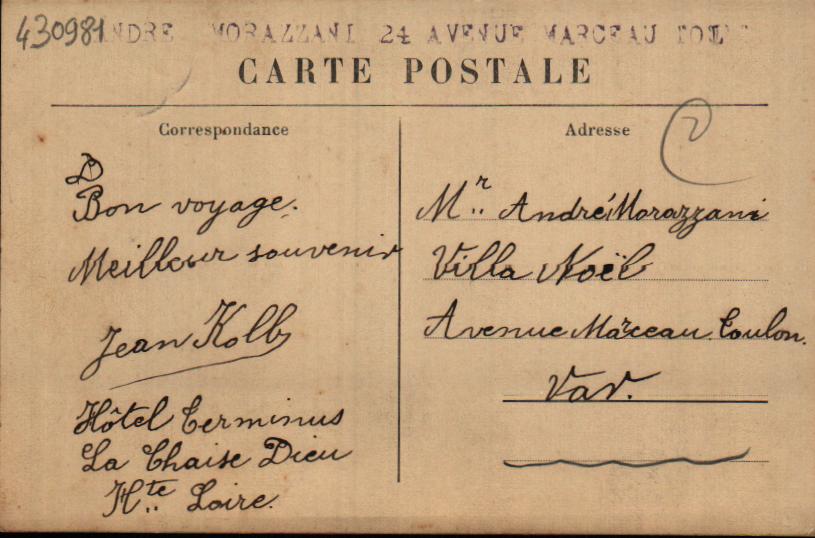 430981
ANDRE MORAZZANI 24 AVENUE MARCEAU
CARTE POSTALE
Correspondance
Bon voyage.
Meilleur souvenir
Jean Kolb
Hôtel Terminus
La Chaise Dieu
Hte Loire.
Adresse
2
Mr André Morazzani
Villa Noël
Avenue Marceau. Toulon.
Var.